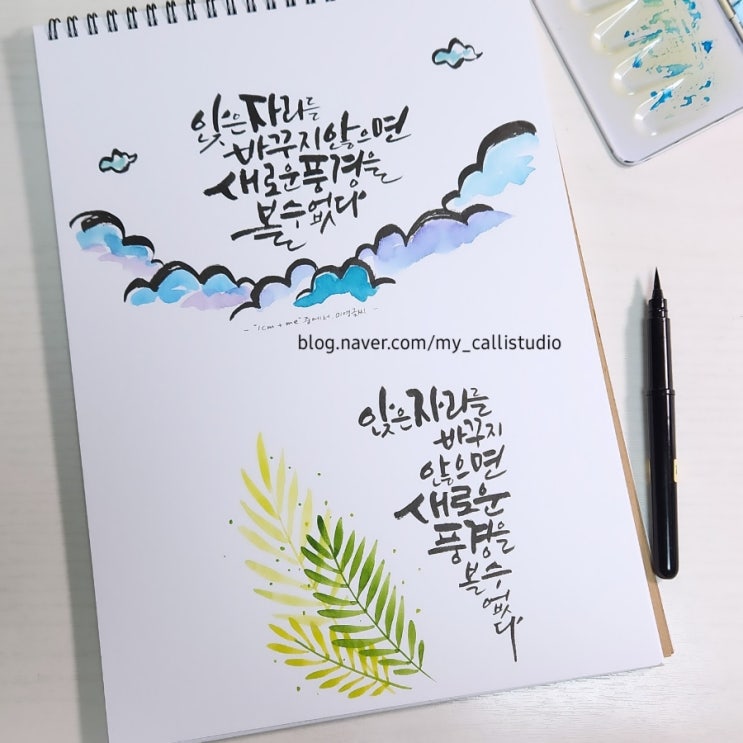 앉은자리를
바꾸지않으면
새로운풍경을
볼수없다
- "1cm+me" 중에서, 미영글씨 -
blog.naver.com/my_callistudio
앉은자리를
바꾸지
않으면
새로운
풍경을
볼수
없
다